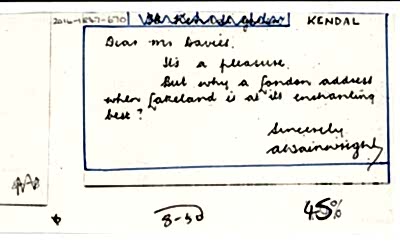 2016-1867-670
KENDAL
Dear Mr Davies,
It's a pleasure.
But why a London address
when Lakeland is at its enchanting
best?
Sincerely
AWainwright
8-50
45%